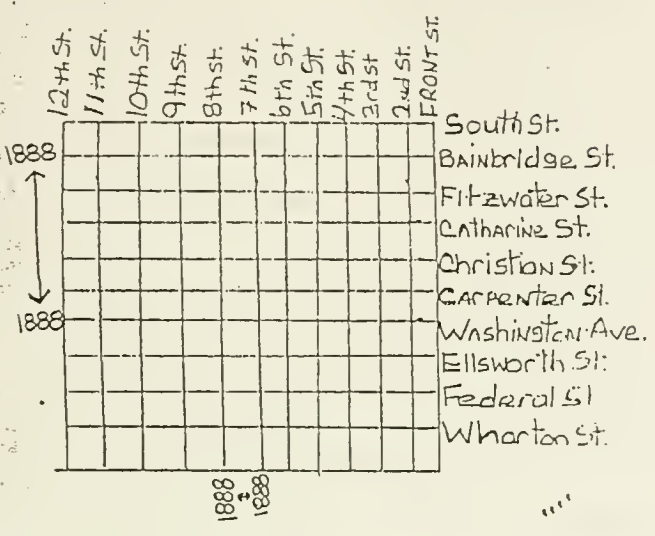 12th St.
11th St.
10th St.
9th St.
8th st.
7th St.
6th St.
5th St.
4th St.
3rd st
2nd St.
FRONT ST.
South St.
1888
BAINbridge St.
Fitzwater St.
CAthArINe St.
ChristiaN St.
CArpeNter St.
1888
WAshiNgtoN Ave.
Ellsworth St.
Federal St
Wharton St.
1888
1888